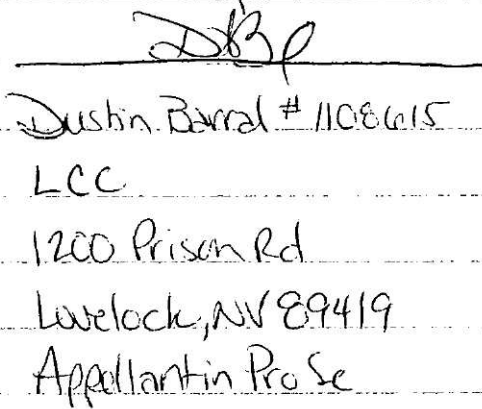 Dustin Barral # 1108615
LCC
1200 Prison Rd
Lovelock, NV 89419
Appellant in Pro Se